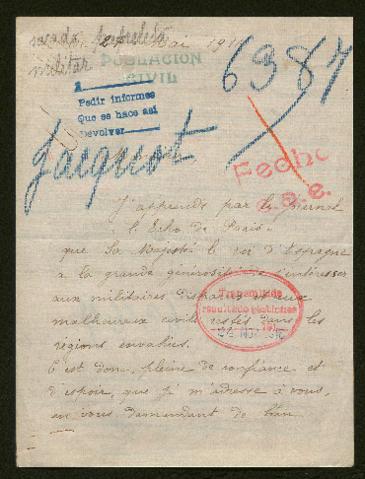 militar
POBLACION
CIVIL
6987
A
Pedir informes
Que se hace asi
Devolver
Jacquot
Fecho
J'apprends par le journal
l'Echo de Paris
que Sa Majesté le roi d'Espagne
a la grande générosité de s'intéresser
aux militaires disparus et aux
malheureux civils restés dans les
régions envahies.
C'est donc pleine de confiance et
d'espoir, que je m'adresse à vous,
en vous demandant de bien
Transmitido
resultado gestiones